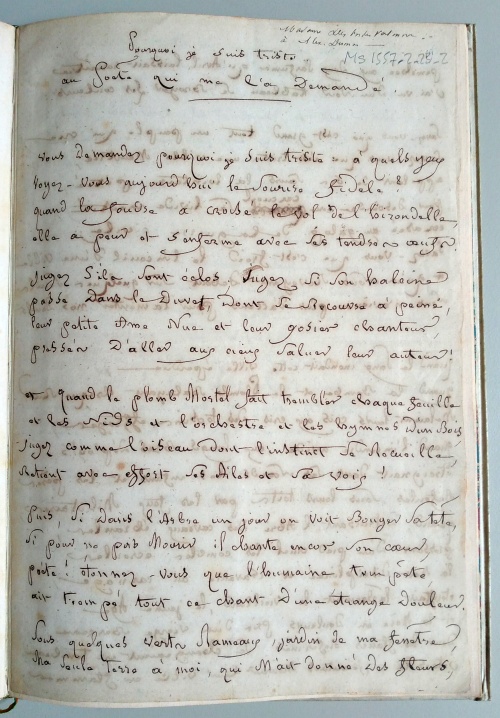 Madame Desbordes Valmore
à Alex. Dumas
Ms 1557-2-28-2
Pourquoi je suis triste
au Poète qui me l'a Demandé.
vous Demandez pourquoi je suis triste - à quels yeux
voyez-vous aujourd'hui le sourire fidèle ?
quand la foudre a croisé le vol de l'hirondelle,
elle a peur et s'enferme avec ses tendres œufs.
Jugez s'ils sont éclos. Jugez si son haleine
passe Dans le Duvet Dont se Recouvre à peine,
leur petite Ame Nue et leur gosier chanteur,
pressés D'aller aux cieux saluer leur auteur !
et quand le plomb Mortel fait trembler chaque feuille
et les Nids et l'orchestre et les hymnes D'un Bois,
Jugez comme l'oiseau dont l'instinct se Recueille,
Retient avec effort ses Ailes et sa voix !
Puis, si Dans l'Arbre un jour on voit Bouger sa tête,
si pour ne pas Mourir il chante encor son cœur,
poète ! étonnez-vous que l'humaine tempête
ait trempé tout ce chant D'une étrange Douleur.
Sous quelques verts Rameaux, jardin de ma fenêtre,
Ma seule terre à moi, qui M'ait donné Des fleurs,